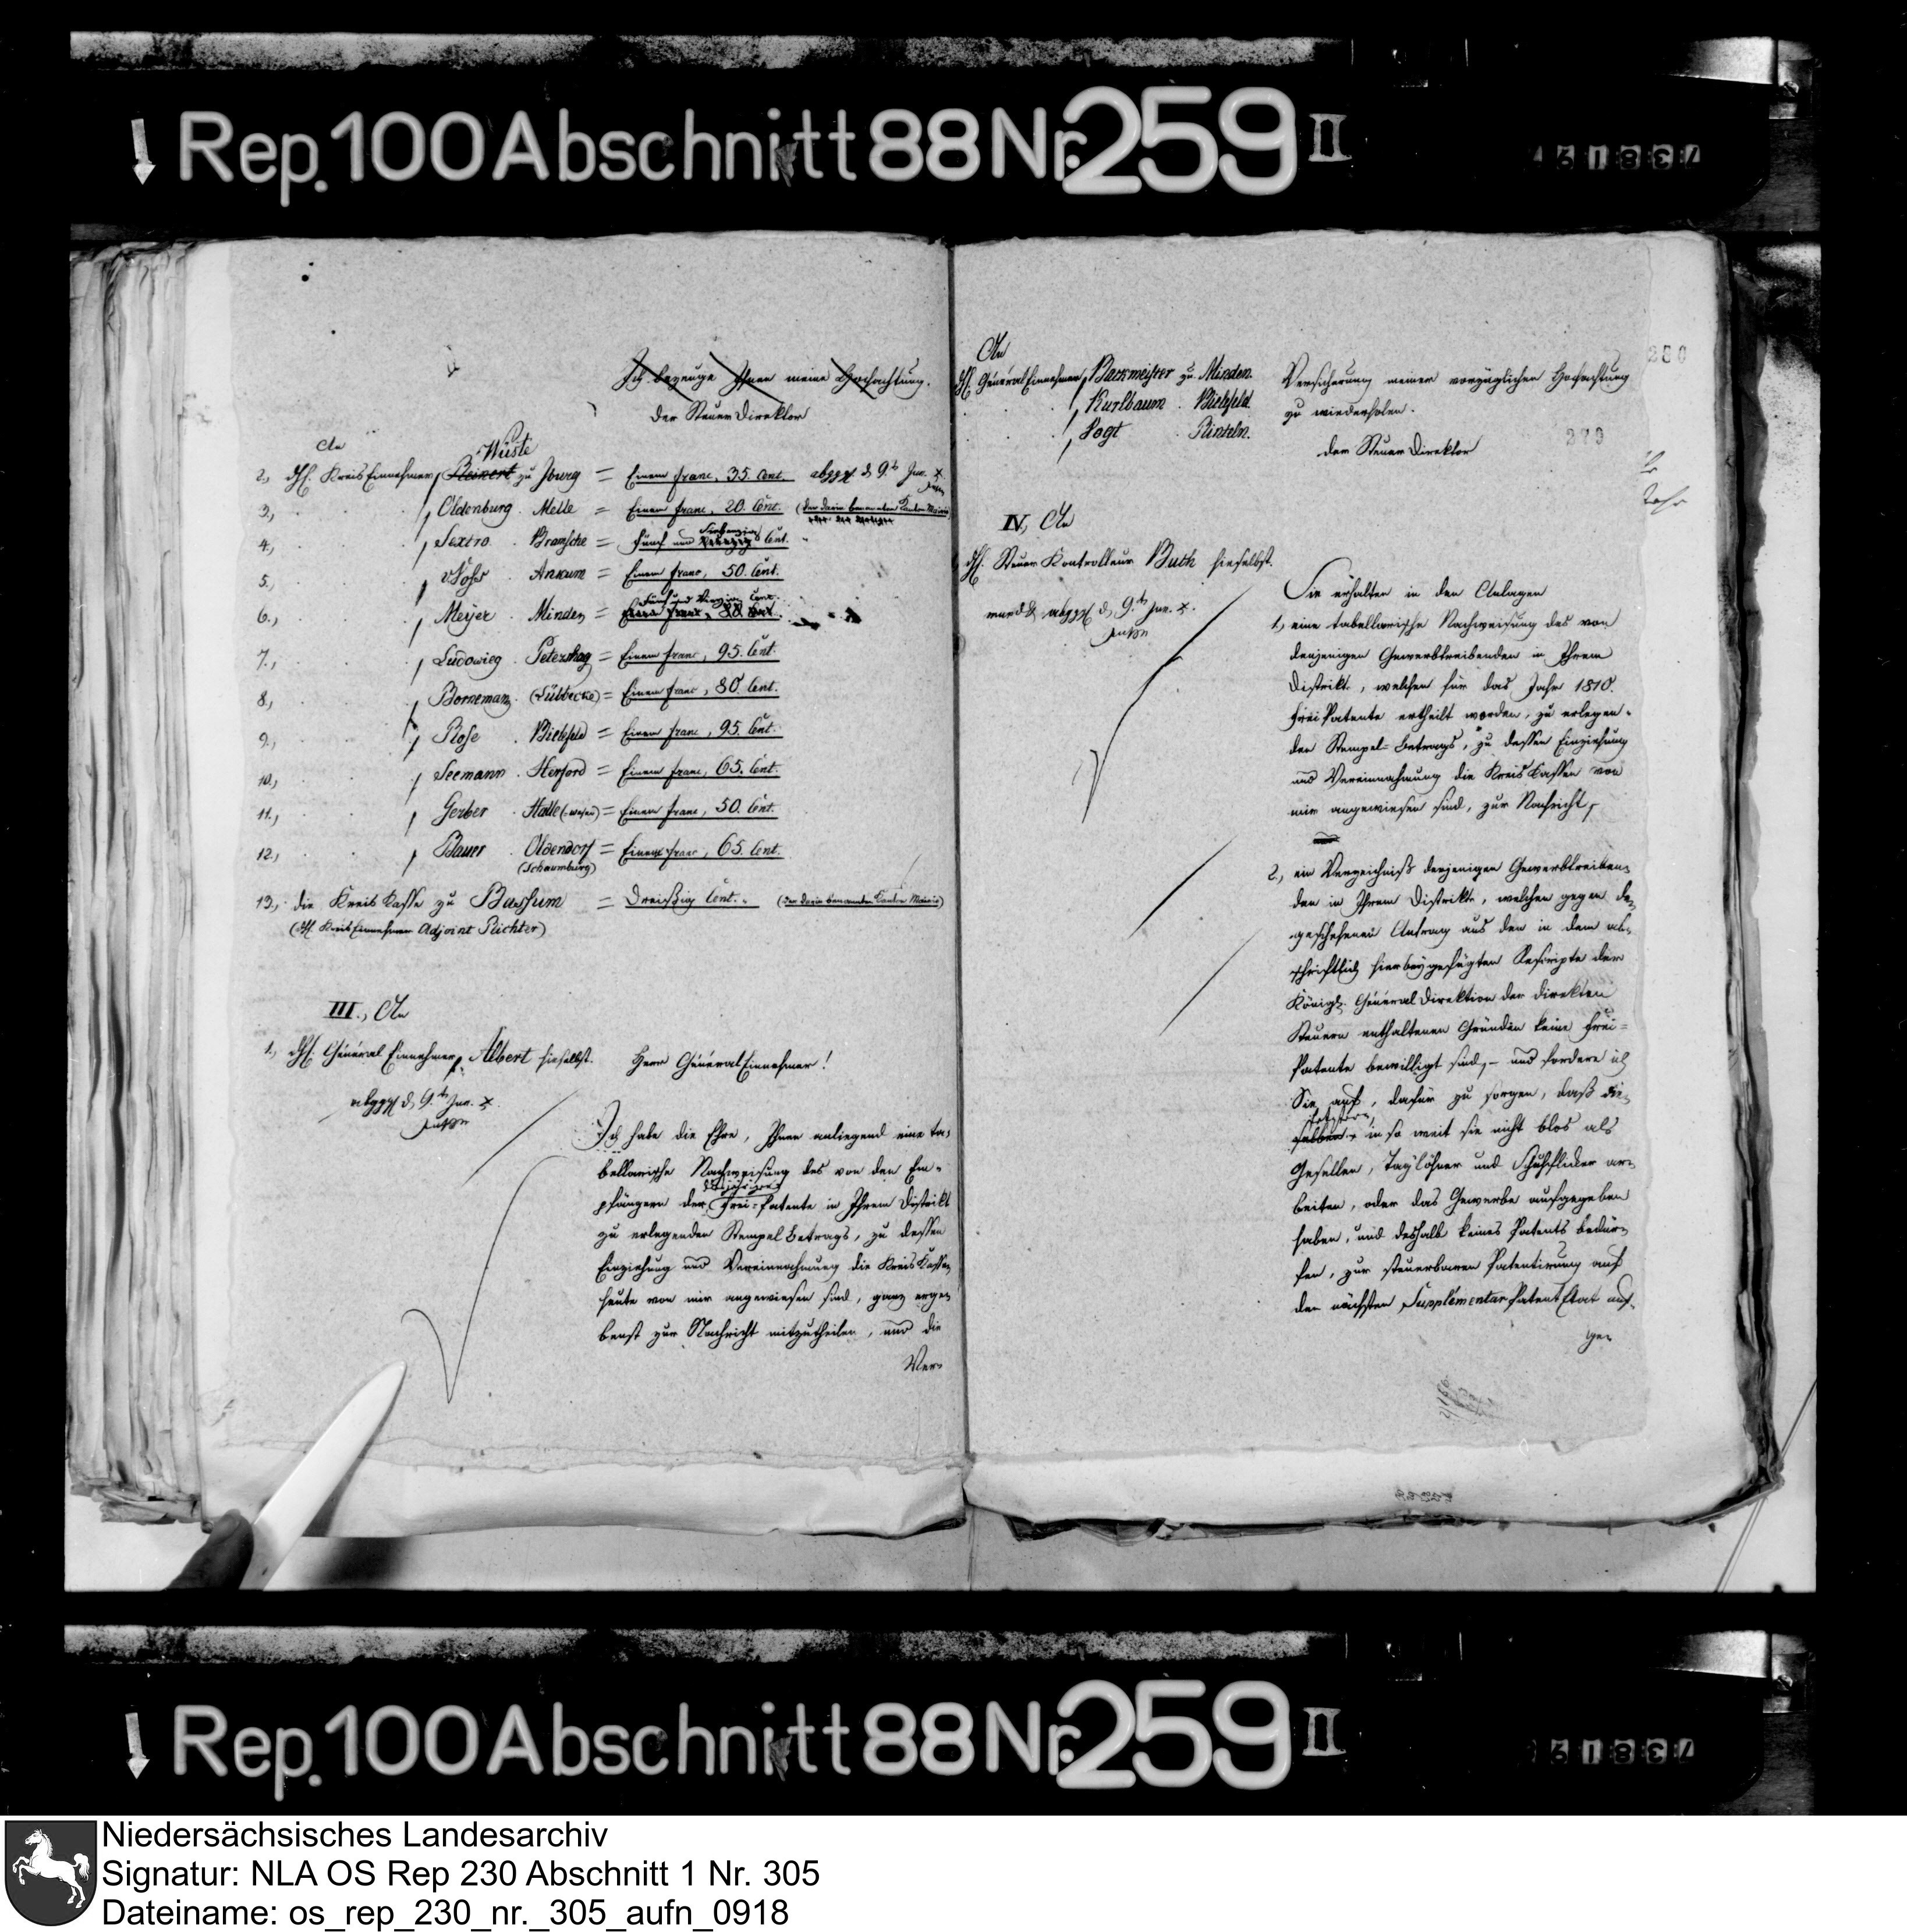 Rep. 100 Abschnitt 88 Nr. 259 II
738197
Ich bezeuge Ihnen meine Hochachtung.
Der Steuer Direktor
An
Wüste
2., dH. Kreis Einnehmer, Reinert zu Iburg = Einem Franc, 35. Cent. abggl d. 9.t Jun.
3., Oldenburg . Melle = Einem Franc, 20. Cent. (der darin benannten Canton Mairie)
4., Sextro . Bramsche = Fünf und Siebenzig Cent.
5., Voss . Ankum = Einem Franc, 50. Cent.
Fünf und Neunzig Cent.
6., Meyer . Minden = Einem Franc, 80. Cent.
7., Ludowieg . Petershag = Einem Franc, 95. Cent.
8., Borneman . (Lübbecke) = Einem Franc, 80. Cent.
9., Rose . Bielefeld = Einem Franc, 95. Cent.
10., Seemann . Herford = Einem Franc, 65. Cent.
11., Gerber . Halle = Einem Franc, 50. Cent.
12., Bauer . Oldendorf = Einem Franc, 65. Cent.
(Schaumburg)
13., die Kreis Casse zu Bassum = Dreißig Cent. (der darin benannten Canton Mairie)
(dH. Kreis Einnehmer Adjoint Richter)
III., An
1., dH. Général Einnehmer, Albert hieselbst.
abggl d. 9.t Jun.
Herr Général Einnehmer!
Ich habe die Ehre, Ihnen anliegend eine ta-
bellarische Nachweisung des von den Em-
diesjährigen
pfängern der Frei-Patente in Ihrem Distrikt
zu erlegenden Stempel Betrags, zu dessen
Einziehung und Vereinnahmung die Kreis Kassen
heute von mir angewiesen sind, ganz erge-
benst zur Nachricht mitzutheilen, und die
Ver-
280
An
dH. Général Einnehmer, Backmeister zu Minden.
Kurlbaum . Bielefeld.
Vogt . Rinteln.
Versicherung meiner vorzüglichen Hochachtung
zu wiederholen.
279
Der Steuer Direktor
Jahr
IV., An
dH. Steuer Kontrolleur Buth hieselbst.
mund. & abggl d. 9.t Jun.
Sie erhalten in den Anlagen
1., eine tabellarische Nachweisung des von
denjenigen Gewerbtreibenden in Ihrem
Distrikte, welchen für das Jahr 1810.
Frei Patente ertheilt worden, zu erlegen-
den Stempel-Betrags, zu dessen Einziehung
und Vereinnahmung die Kreis Cassen von
mir angewiesen sind, zur Nachricht,
2., ein Verzeichniß derjenigen Gewerbtreiben-
den in Ihrem Distrikte, welchen gegen de-
geschehenen Antrag aus den in dem ab-
schriftlich hierbeygefügten Rescripte der
Königl. Général Direktion der direkten
Steuern enthaltenen Gründen keine Frei-
Patente bewilligt sind, – und fordere ich
Sie auf, dafür zu sorgen, daß die-
letztern,
selben, in so weit sie nicht blos als
Gesellen, Taglöhner und Schuhflicker ar-
beiten, oder das Gewerbe aufgegeben
haben, und deshalb keines Patents bedür-
fen, zur steuerbaren Patentirung auf
den nächsten Supplémentar Patent Etat auf-
ge-
Rep. 100 Abschnitt 88 Nr. 259 II
738197
Niedersächsisches Landesarchiv
Signatur: NLA OS Rep 230 Abschnitt 1 Nr. 305
Dateiname: os_rep_230_nr._305_aufn_0918